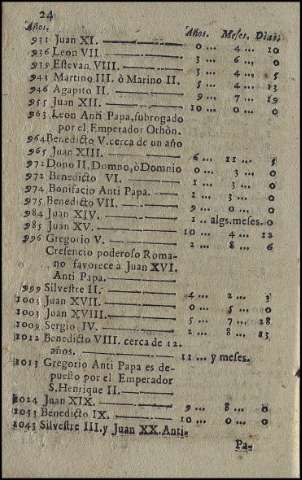 24
Años. Años. Meses. Dias.
931 Juan XI. 0... 4... 10
936 Leon VII. 3... 6... 0
939 Estevan VIII. 3... 4... 5
943 Martino III. ò Marino II. 5... 4... 13
946 Agapito II. 9... 7... 19
955 Juan XII. 10... 0... 0
963 Leon Anti Papa, subrogado
por el Emperador Othòn.
964 Benedicto V. cerca de un año
965 Juan XIII. 6... 11... 5
972 Dono II, Domno, ò Domnio 0... 3... 0
972 Benedicto VI. 1... 3... 0
974 Bonifacio Anti Papa. 1... 3... 0
975 Benedicto VII. 9... 0... 0
984 Juan XIV. 1.. algs. meses. 0
985 Juan XV. 10... 4... 12
996 Gregorio V. 2... 8... 6
Crescencio poderoso Roma-
no favorece à Juan XVI.
Anti Papa.
999 Silvestre II. 4... 2... 3
1003 Juan XVII. 0... 5... 0
1003 Juan XVIII. 5... 7... 28
1009 Sergio IV. 2... 8... 13
1012 Benedicto VIII. cerca de 12
años. 11... y meses.
1013 Gregorio Anti Papa es de-
puesto por el Emperador
S. Henrique II.
1024 Juan XIX. 9... 8... 0
1033 Benedicto IX. 10... 0... 0
1043 Silvestre III. y Juan XX. Anti-
Pa-